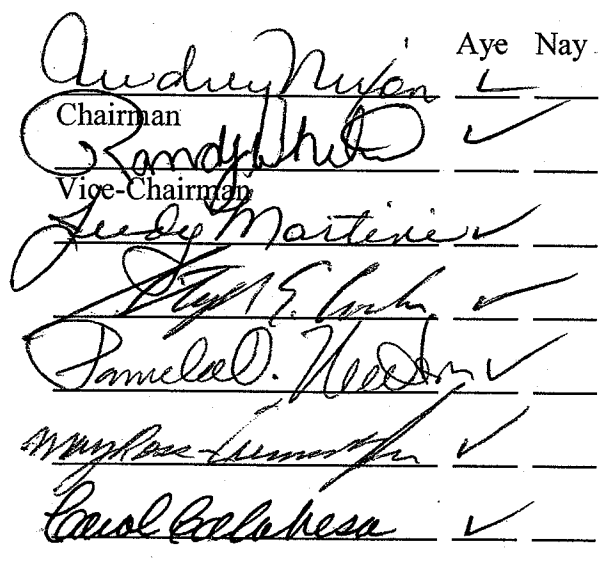 Aye Nay
Audrey Nixon
Chairman
Randy White
Vice-Chairman
Judy Martini
E.
Pamela O.
Carol Calabresa